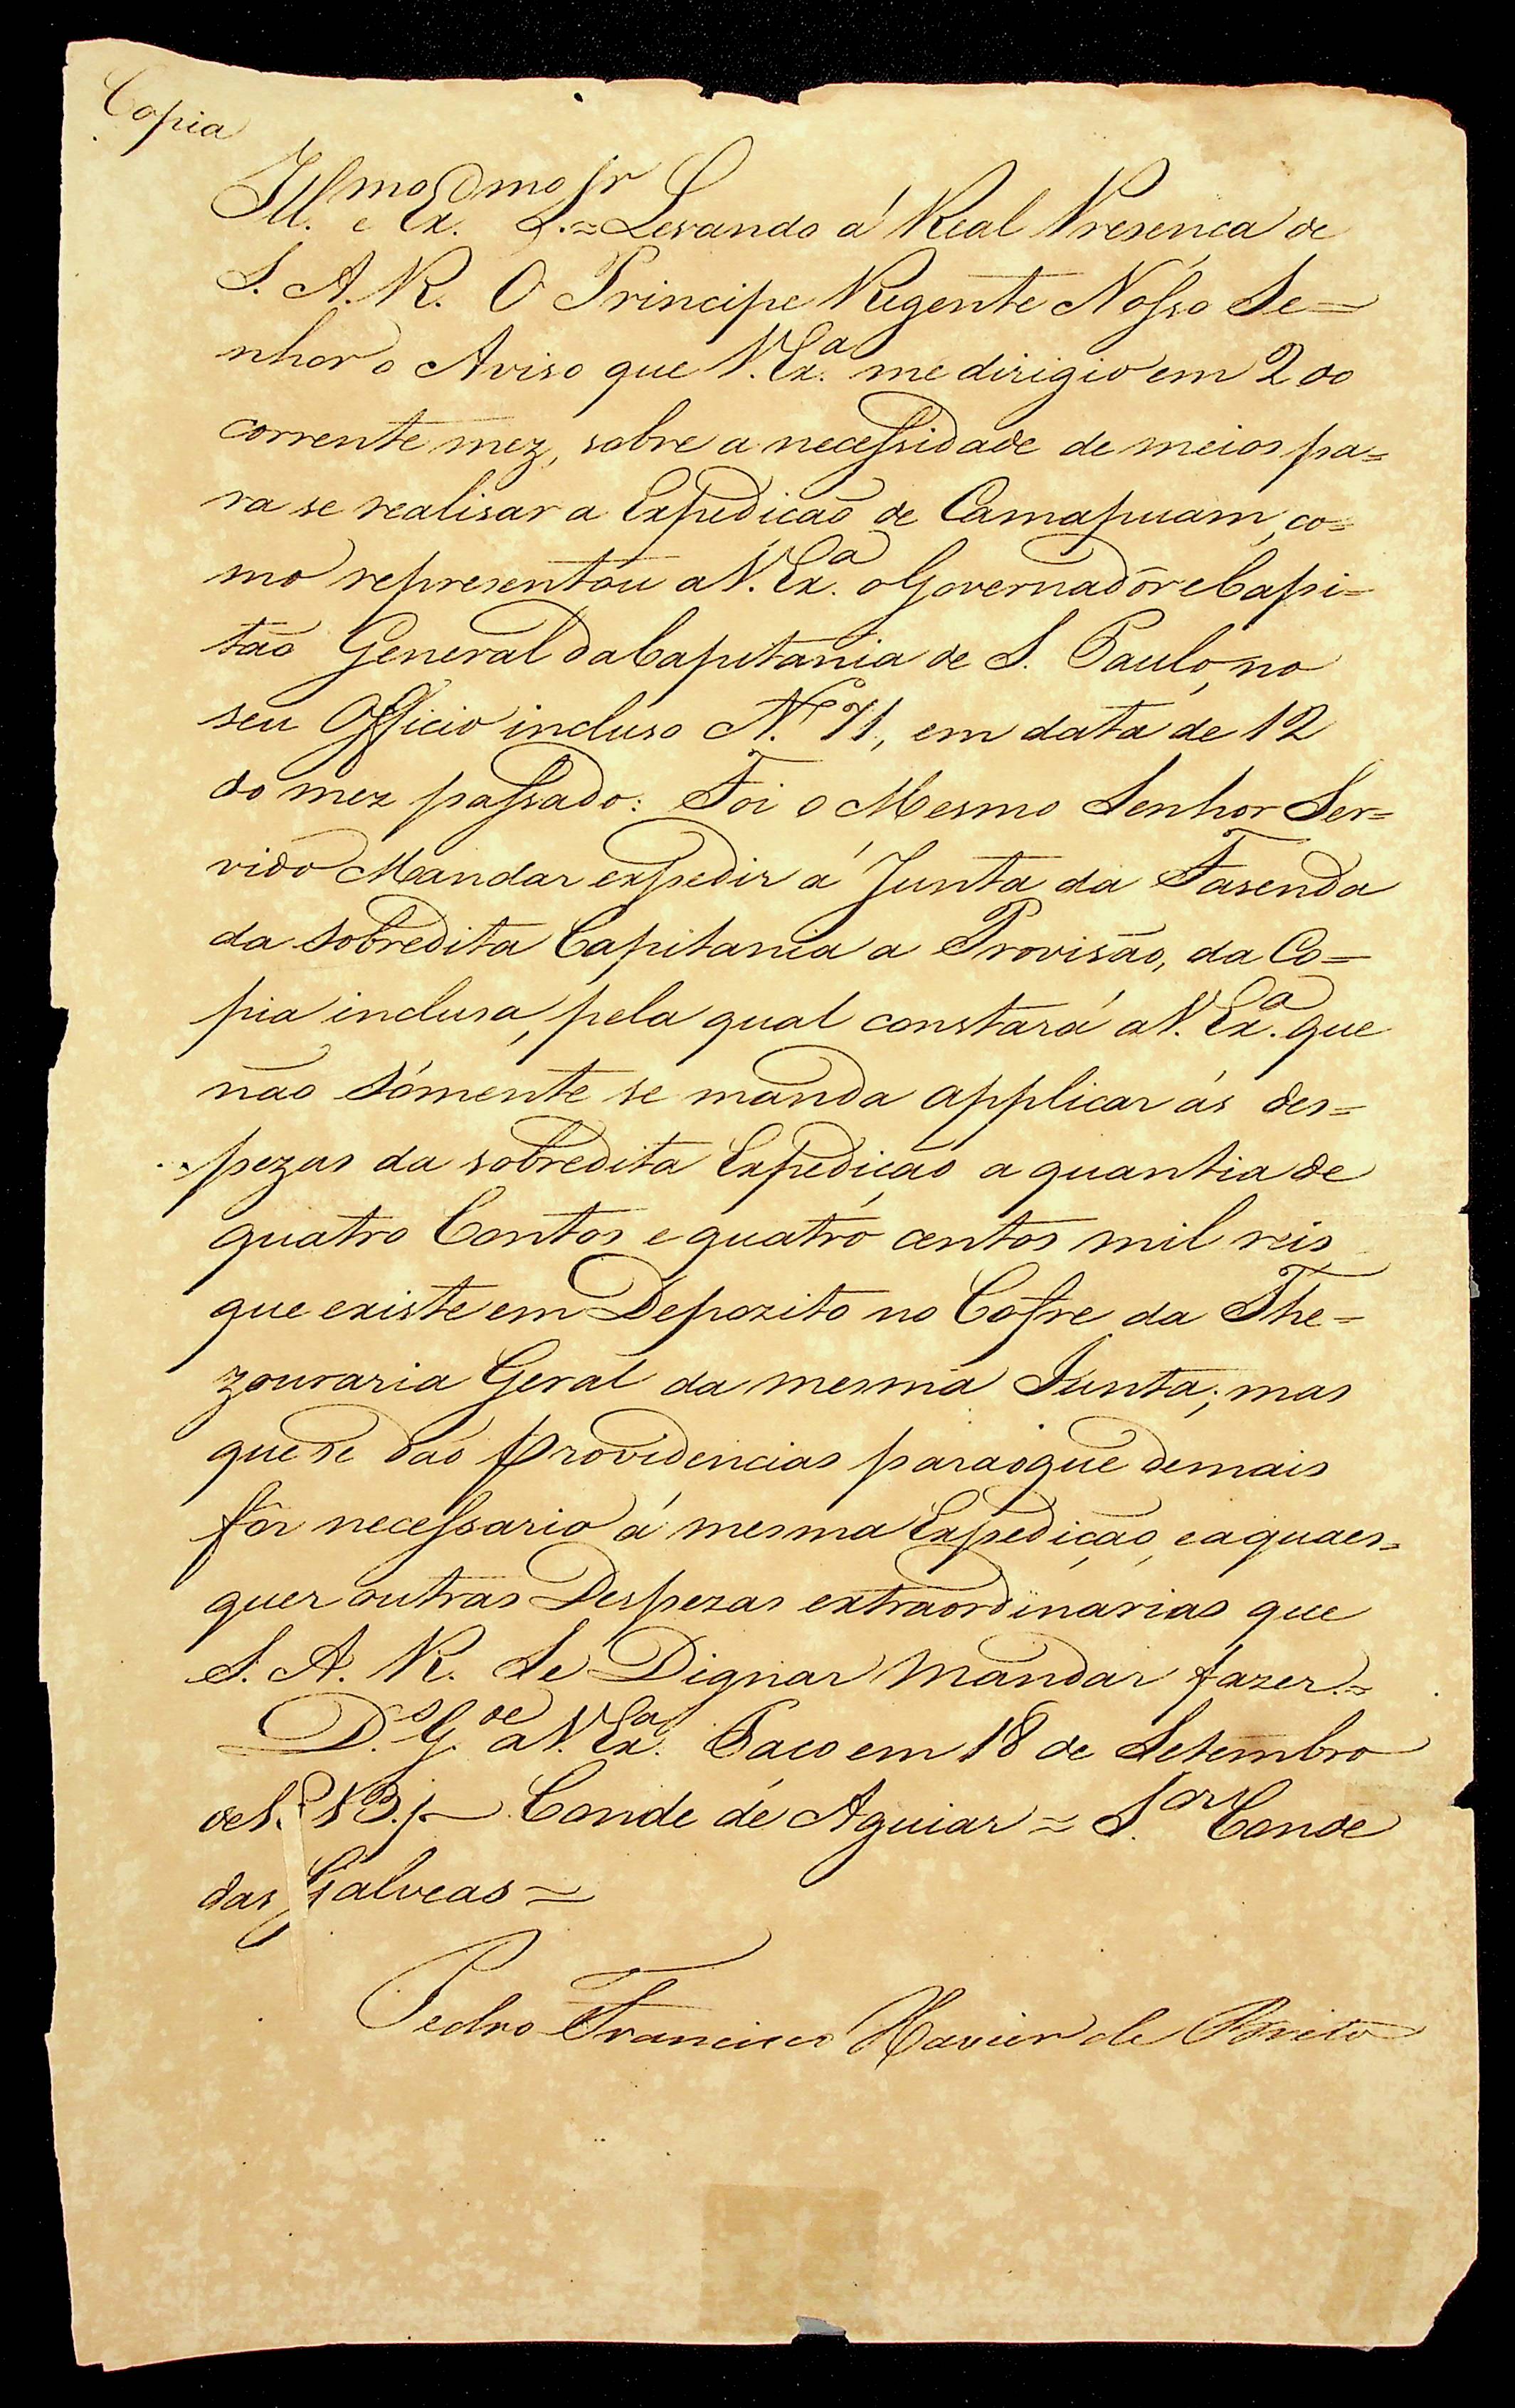 Copia
Ill.mo e Ex.mo Sr. = Levando á Real Presença de
S. A. R. O Principe Regente Nosso Se=
nhor o Aviso que V. Ex.a me dirigio em 2 do
corrente mez, sobre a necessidade de meios pa=
ra se realisar a Expedição de Camapuam, co=
mo representou a V. Ex.a o Governadôr e Capi=
tão General da Capitania de S. Paulo, no
seu Officio incluso N.o 71, em data de 12
do mez passado: Foi o Mesmo Senhor Ser=
vido Mandar expedir á Junta da Fasenda
da sobredita Capitania a Provisão, da Co=
pia inclusa, pela qual constará a V. Ex.a que
não sómente se manda applicar ás des=
pezas da sobredita Expedição a quantia de
quatro Contos e quatro centos mil reis
que existe em Depozito no Cofre da The=
zouraria Geral da mesma Junta; mas
que se dão providencias para o que de mais
fôr necessario á mesma Expedição, e a quaes=
quer outras Despezas extraordinarias que
S. A. R. Se Dignar mandar fazer. =
D.s G.de a V. Ex.a Paço em 18 de Setembro
de 1813 = Conde de Aguiar = S.or Conde
das Galveas =
Pedro Francisco Xavier de Brito